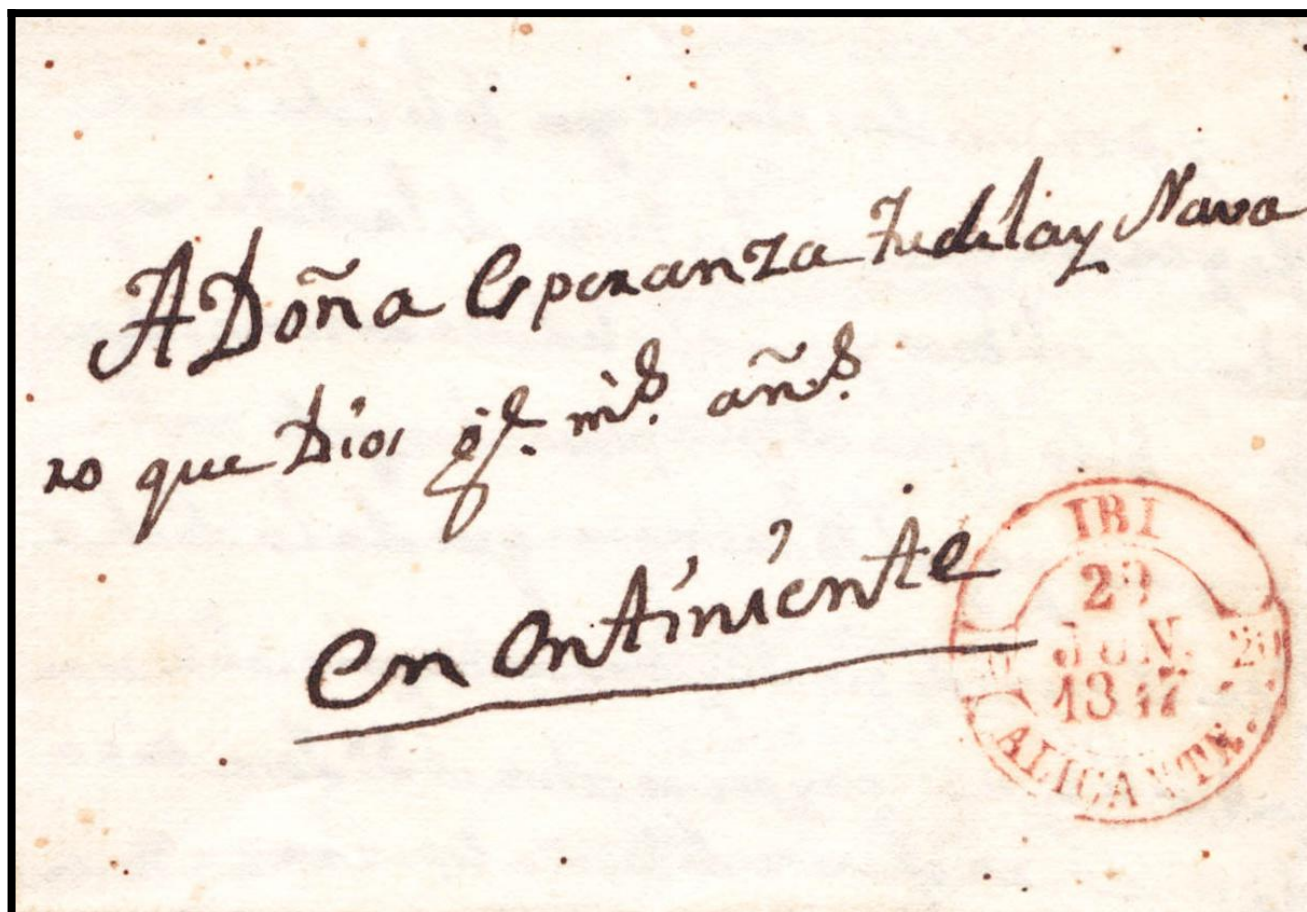 A Doña Esperanza Tudela y Nava
ro que Dios g.e m.s añ.s
en Ontiniente
IBI
29
JUN.
1847
20
ALICANTE.